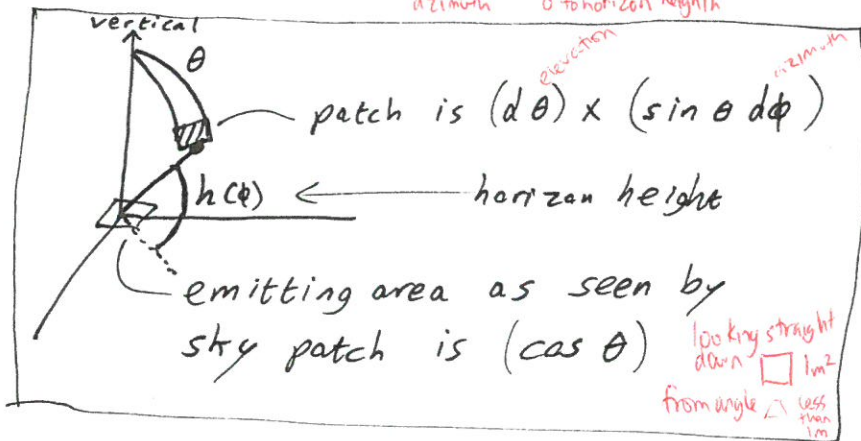 azimuth 0 to horizon height
vertical
θ
elevation
azimuth
patch is (dθ) × (sin θ dϕ)
h(ϕ)
horizon height
emitting area as seen by
sky patch is (cos θ)
looking straight
down 1m²
from angle less
than
1m